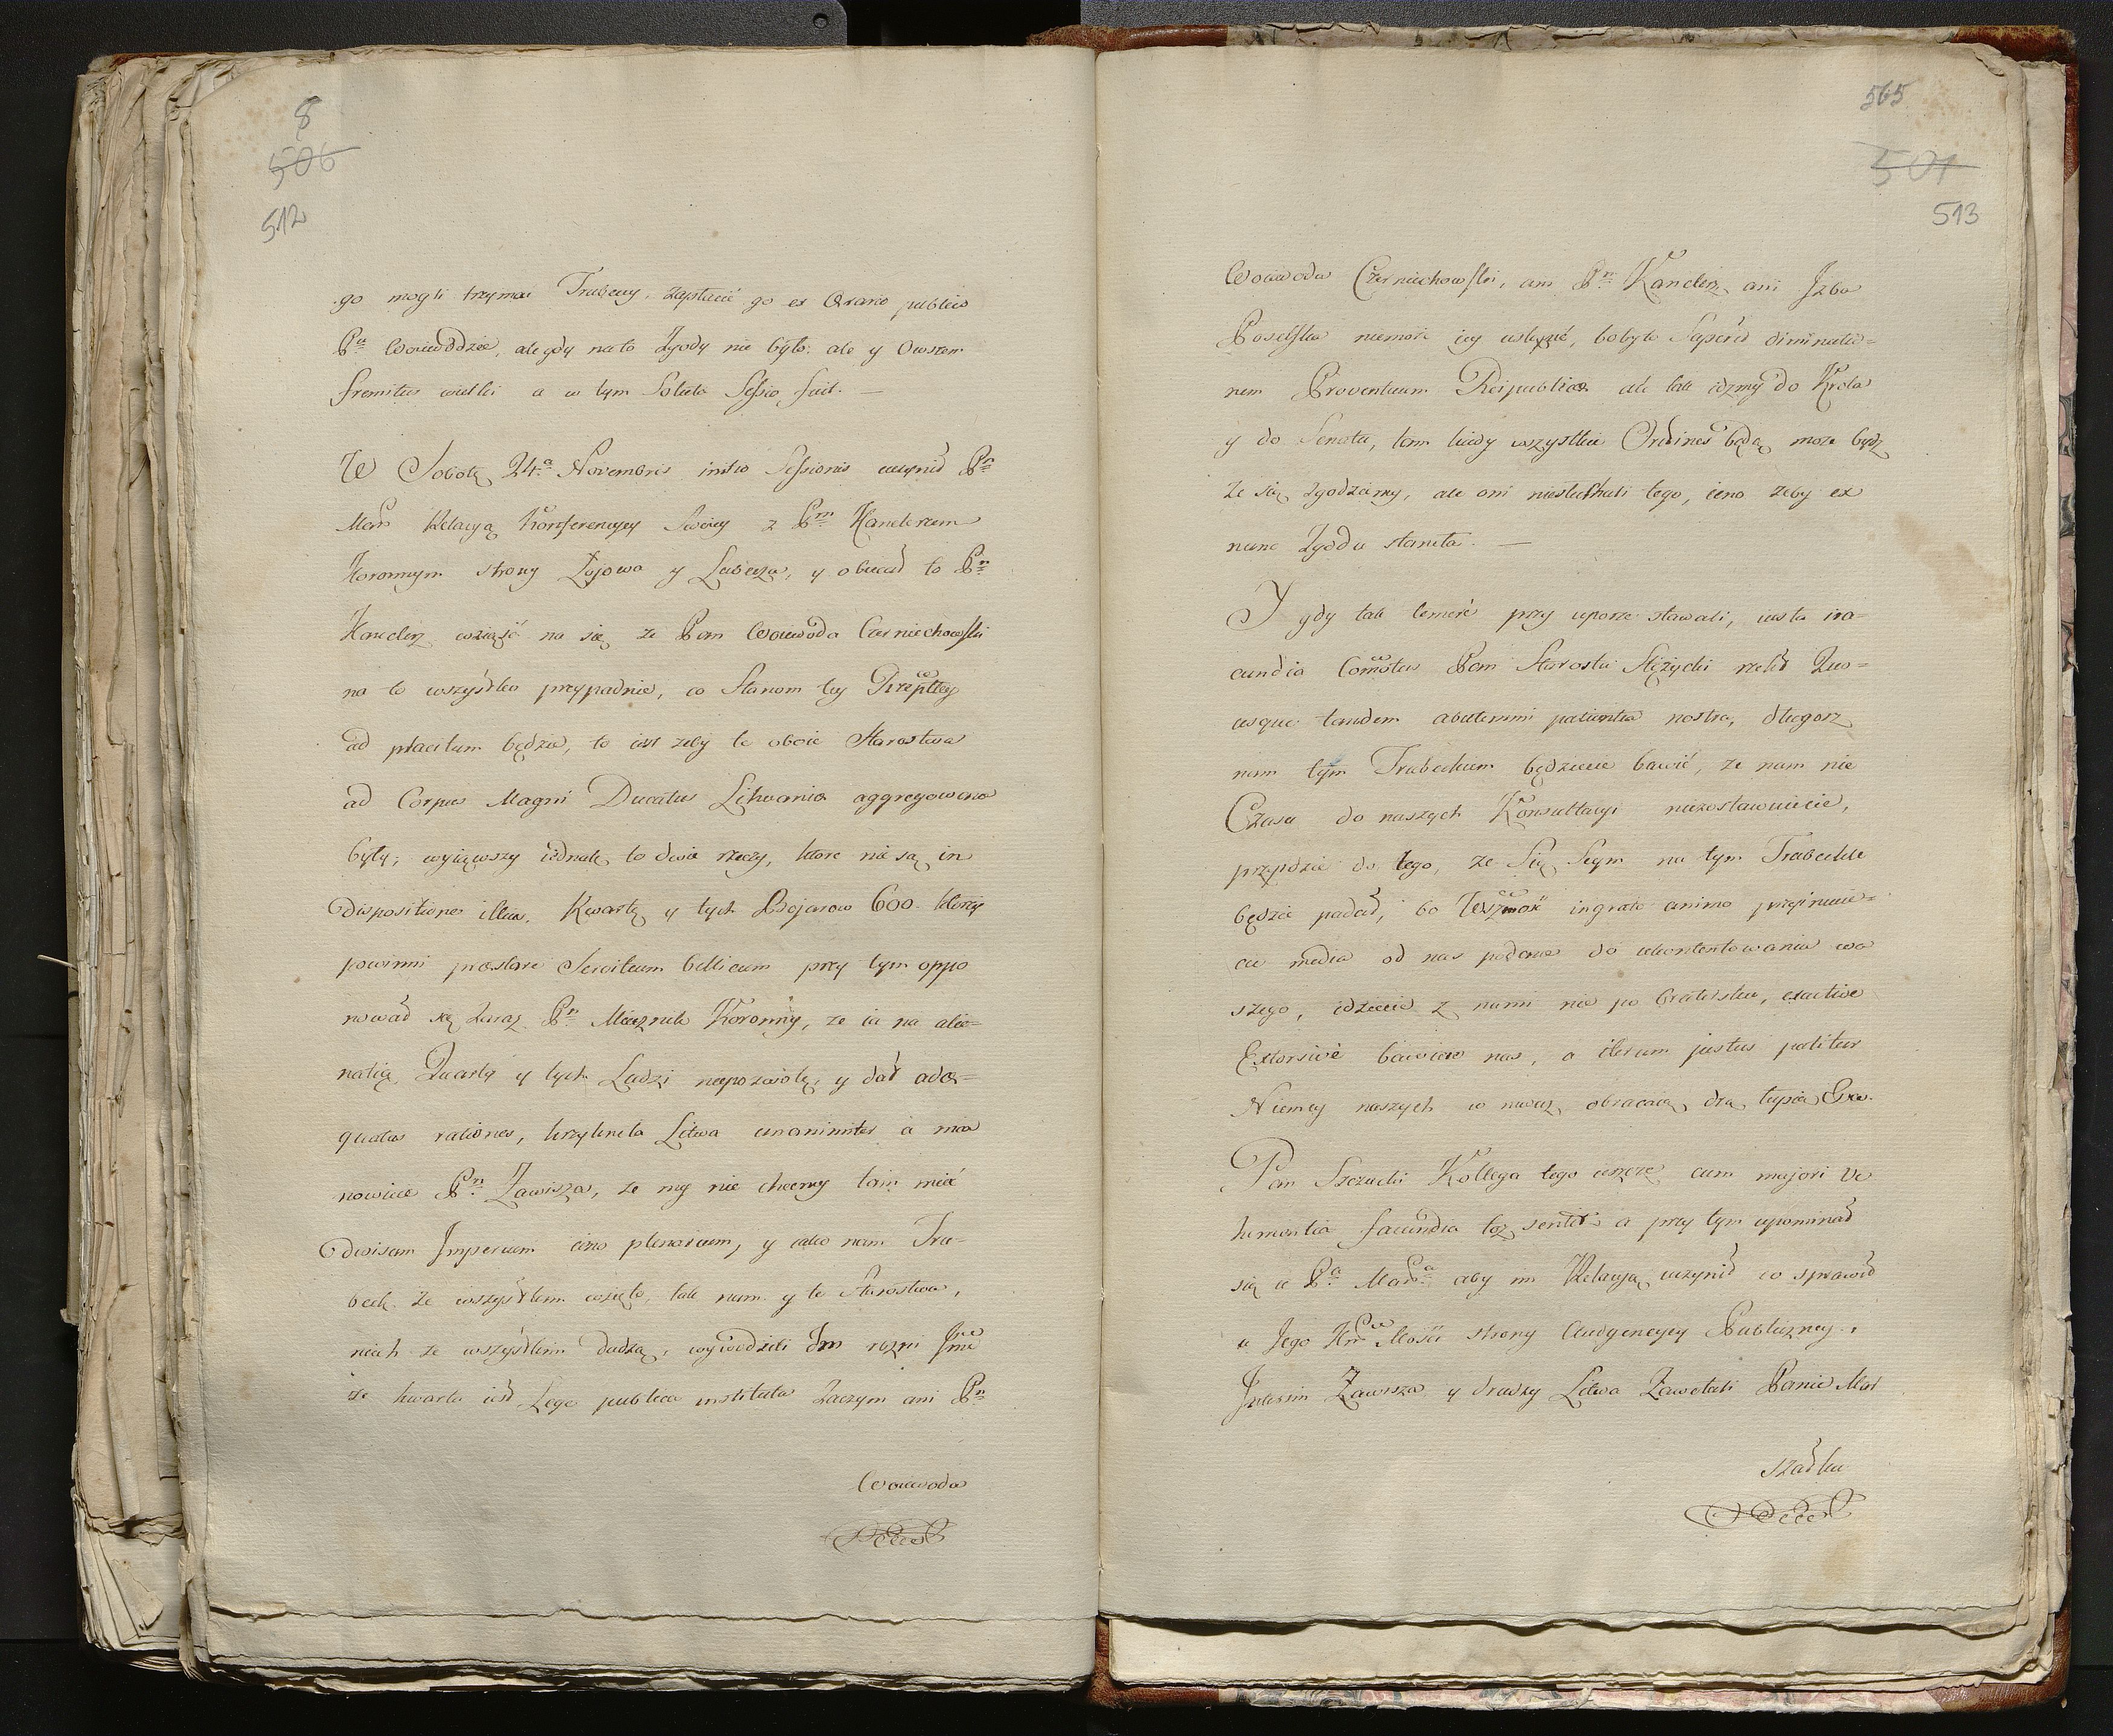 8
506
512
go mogli trzymać Trubecuy, zapłacić go ex Ærario publico
Pu Woiewodzie, ale gdy na to Zgody nie było. ale y Owszem
fremitus wielki a w tym Soluta Sessio fuit. —
W Sobotę 24.a Novembris initio Sessionis uczynił Pn
Mar Relacyą Konferencyey Swoiey z Pm Kanclerzem
Koronnym strony Łojowa y Lubecza, y obiecał to Pn
Kanclerz wziąść na się ze Pan Woiewoda Czerniechowski
na to wszystko przypadnie, co Stanom tey Rzepltey
ad placitum będzie, to iest zeby te oboie Starostwa
ad Corpus Magni Ducatus Lithvaniæ aggregowane
były; wyiąwszy iednak te dwie rzeczy, ktore nie są in
dispositione illius, Kwartę y tych Bojarow 600. ktorzy
powinni præstare Servitium bellicum przy tym oppo
nował się zaraz Pn Miecznik Koronny, ze ia na alie=
natią Quarty y tych Ludzi niepozwolę, y dał adæ=
quatas rationes, krzyknęła Litwa unanimiter a mia
nowicie Pn Zawisza, ze my nie chcemy tam mieć
divisum Imperium ieno plenarium, y iako nam Tru-
beck ze wszystkim wzięto, tak nam y te Starostwa,
niech ze wszystkim dadzą, wywodzili Im rozni Ime
ze kwarta iest Lege publica instituta Zaczym ani Pn
Woiewoda
565
507
513
Woiewoda Czerniechowski, ani Pn Kanclerz ani Izba
Poselska niemoże iey ustąpić, boby to Sapere diminutio=
nem Proventuum Reipublicæ ale tak idzmy do Krola
y do Senatu, tam kiedy wszystkie Ordines będą moze bydz
ze się zgodzimy, ale oni niesłuchali tego, ieno zeby ex
nunc Zgoda stanęła. —
Y gdy tak temere przy uporze stawali, iusta ira-
cundia Comotus Pan Starosta Stężycki rzekł Quo=
usque tandem abutemini patientia nostra, długosz
nam tym Trubeckiem będziecie bawić, ze nam nie
Czasu do naszych Konsultacyi niezostawuiecie,
przyidzie do tego, ze Się Seym na tym Trubecku
będzie padał, bo Wszmość ingrato animo przyimuie=
cie media od nas podane do ukontentowania wa
szego, idziecie z nami nie po bratersku, exactive
Extorsive bawicie nas, a iterum justus patitur
Niemcy naszych w niwecz obracaią, drą łupią Etc.
Pan Szczucki Kollega tego ieszcze cum majori Ve
hementia facundia toz sentit a przy tym upominał
się u Pa Marka aby im Relacyą uczynił co sprawił
u Jego Krol Mości strony Audyencyey Publiczney.
Interim Zawisza y drudzy Litwa Zawołali Panie Mar
szałku